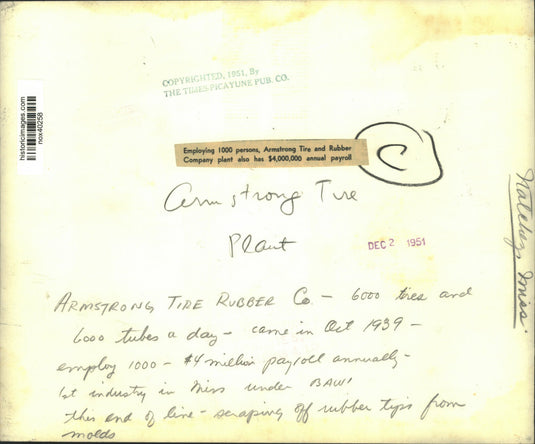 COPYRIGHTED, 1951, By
THE TIMES-PICAYUNE PUB. CO.
historicimages.com
nox40258
Employing 1000 persons, Armstrong Tire and Rubber
Company plant also has $4,000,000 annual payroll
C
Armstrong Tire
Plant
DEC 2 1951
Natchez, Miss.
ARMSTRONG TIRE RUBBER Co. - 6000 tires and
6000 tubes a day - came in Oct 1939 -
employ 1000 - $4 million payroll annually -
1st industry in Miss under BAWI
this end of line - scraping off rubber tips from
molds